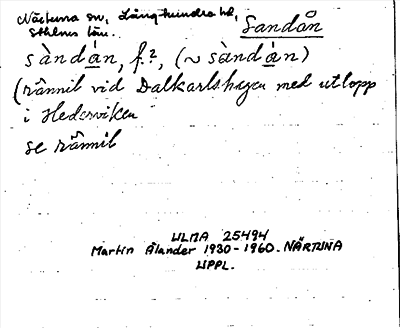 Närtuna sn, Långhundra hd,
Sthlms län.
Sandån
sàndán, f.?, (~ sàndán)
(rännil vid Dalkarlshagen med utlopp
i Hederviken
se rännil
ULMA 25494
Martin Ålander 1930-1960. NÄRTUNA
UPPL.